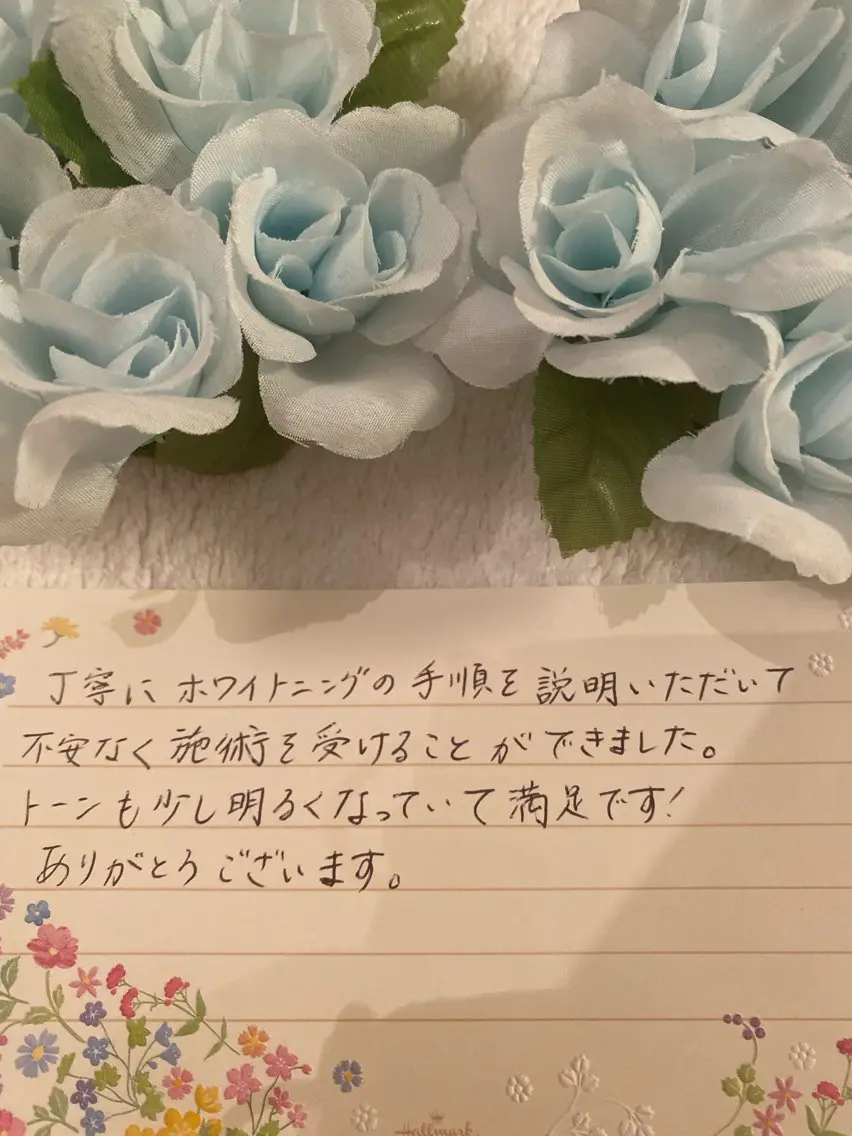 丁寧に ホワイトニングの 手順を 説明いただいて
不安なく 施術を 受けること が できました。
トーンも 少し 明るくなっていて 満足です!
ありがとう ございます。
Hallmark